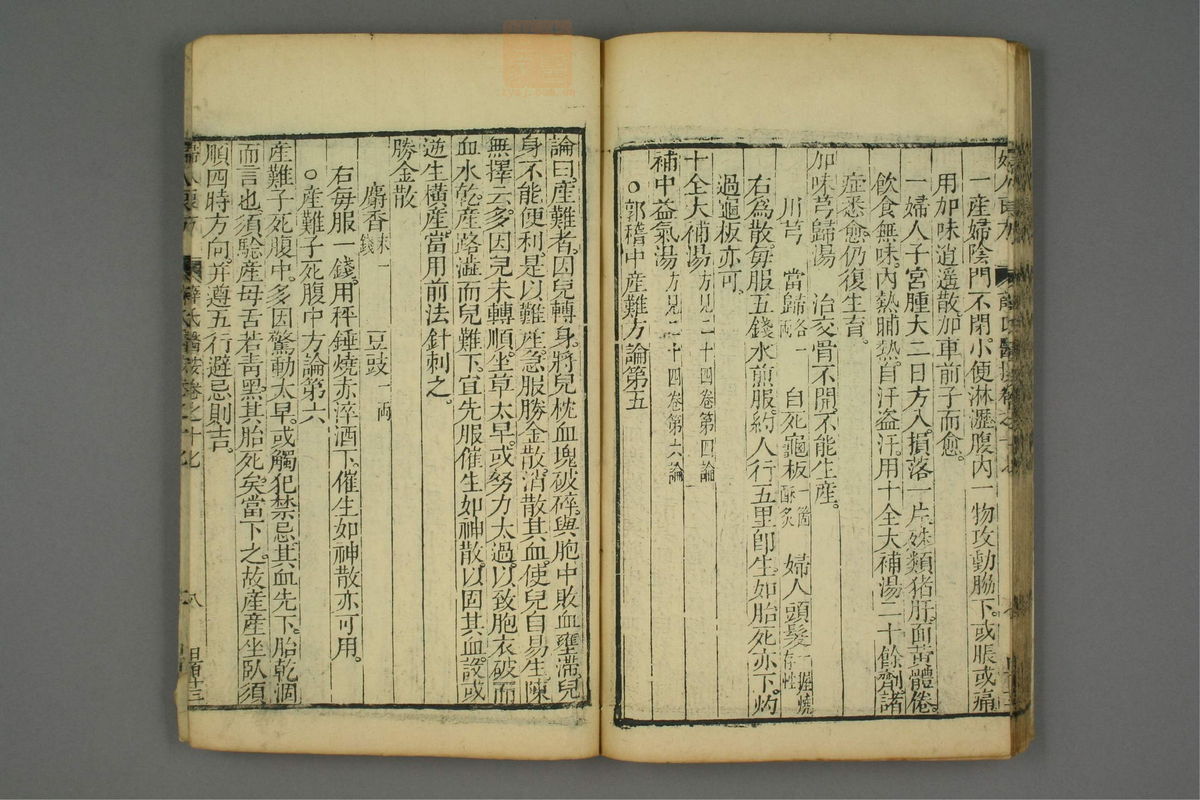 一產婦陰門不閉小便淋瀝腹內一物攻動脇下或脹或痛
用加味逍遙散加車前子而愈
一婦人子宮腫大二日方入損落一片姝類猪肝面黃體倦
飲食無味內熱晡熱自汗盗汗用十全大補湯二十餘劑諸
症悉愈仍復生育
加味芎歸湯 治交骨不開不能生産
川芎 當歸各一兩 自死龜板一箇酥炙 婦人頭髮一握燒存性
右為散每服五錢水煎服約人行五里即生如胎死亦下灼
過龜板亦可
十全大補湯方見二十四卷第四論
補中益氣湯方見二十四卷第六論
○郭稽中產難方論第五
論曰產難者因兒轉身將兒枕血塊破碎與胞中敗血壅滯兒
身不能便利是以難產急服勝金散消散其血使兒自易生陳
無擇云多因兒未轉順坐草太早或努力太過以致胞衣破而
血水乾產路澁而兒難下宜先服催生如神散以固其血設或
逆生橫產當用前法針刺之
勝金散
麝香末一錢 豆豉一兩
右每服一錢用秤錘燒赤淬酒下催生如神散亦可用
○產難子死腹中方論第六
產難子死腹中多因驚動太早或觸犯禁忌其血先下胎乾涸
而言也須驗産母舌若靑黑其胎死矣當下之故産產坐臥須
順四時方向并遵五行避忌則吉
八